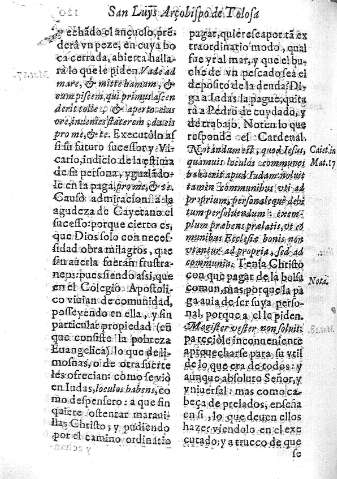 San Luys Arçobispo de Tolosa
y echado el ançuelo, prē-
derà vn peze, en cuya bo
ca cerrada, abierta halla
rà lo que le piden. Vade ad
mare, & mitte hamum, &
eum piscem, qui primus ascen
derit tolle: & aperto eius
ore, inuenies staterem, da eis
pro me, & te. Executólo as
si su futuro sucessor y Vi-
cario, indicio de la estima
de su persona, ygualado-
le en la paga, pro me, & te.
Causò admiracion à la
agudeza de Cayetano el
sucesso: porque cierto es,
que Dios solo con neces-
sidad obra milagros, que
sin auerla fueran frustra-
neos: pues siendo assi, que
en el Colegio Apostoli-
co viuian de comunidad,
posseyendo en ella, y sin
particular propiedad (en
que consiste la pobreza
Euangelica) lo que de li-
mosnas, ò de otra suerte
les ofrecian: como se viò
en Iudas, loculos habens, co
mo despensero: a que fin
quiere ostentar maraui-
llas Christo; y pudiendo
por el camino ordinario
pagar, quiere sea por tā ex
traordinario modo, qual
fue yr al mar, y que el bu-
che de vn pescado sea el
deposito de la deuda: Di-
ga a Iudas la pague, quita
rà a Pedro de cuydado, y
de trabajo. Noten lo que
responde el Cardenal.
Notandum est, quod Iesus,
quamuis loculos communes
haberet apud Iudam, voluit
tamen communibus vti ad
proprium, personale que debi
tum persoluendum: exem-
plum præbens prælatis, vt cō
munibus Ecclesiæ bonis, non
vtantur ad propria, sed ad
communia. Tenia Christo
con què pagar de la bolsa
comun, mas porque la pa
ga auia de ser suya perso-
nal, porque a el le piden.
Magister vester non soluit:
pareciòle inconueniente
apiouecharse para su vtil
de lo que era de todos: y
aunque absoluto Señor, y
vniuersal: mas como ca-
beça de prelados, enseña
en si, lo que deuen ellos
hazer viendolo en el exe
cutado; y a trueco de que
se
Caiet. in
Mat. 17
Nota.